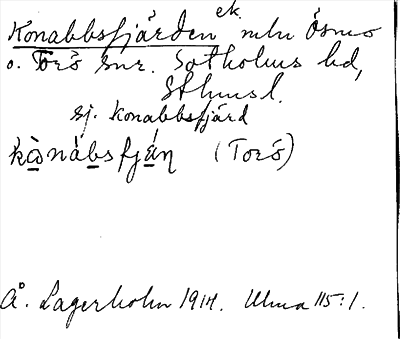 Konabbsfjärden ek. mln Ösmo
o. Torö snr. Sotholms hd,
Sthmsl.
sj. Konabbsfjärd
kò̱nábsfjä́ṉ (Torö)
Å. Lagerholm 1914. Ulma 115:1.